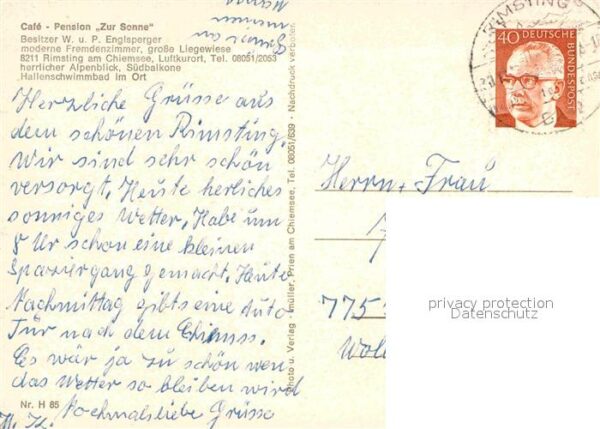 Café - Pension „Zur Sonne"
Besitzer W. u. P. Englsperger
moderne Fremdenzimmer, große Liegewiese
8211 Rimsting am Chiemsee, Luftkurort, Tel. 08051/2053
herrlicher Alpenblick, Südbalkone
Hallenschwimmbad im Ort
Herzliche Grüsse aus
dem schönen Rimsting.
Wir sind sehr schön
versorgt. Heute herliches
sonniges Wetter. Habe um
8 Ur schon eine kleinen
Spaziergang gemacht. Heute
Nachmittag gibts eine Auto
Tur nach dem
Es wär ja zu schön wen
das Wetter so bleiben wird
Nochmals liebe Grüsse
Nr. H 85
Photo u. Verlag müller, Prien am Chiemsee, Tel. 08051/638 · Nachdruck verboten
RIMSTING
40 DEUTSCHE BUNDESPOST
Herrn + Frau
775
privacy protection
Datenschutz